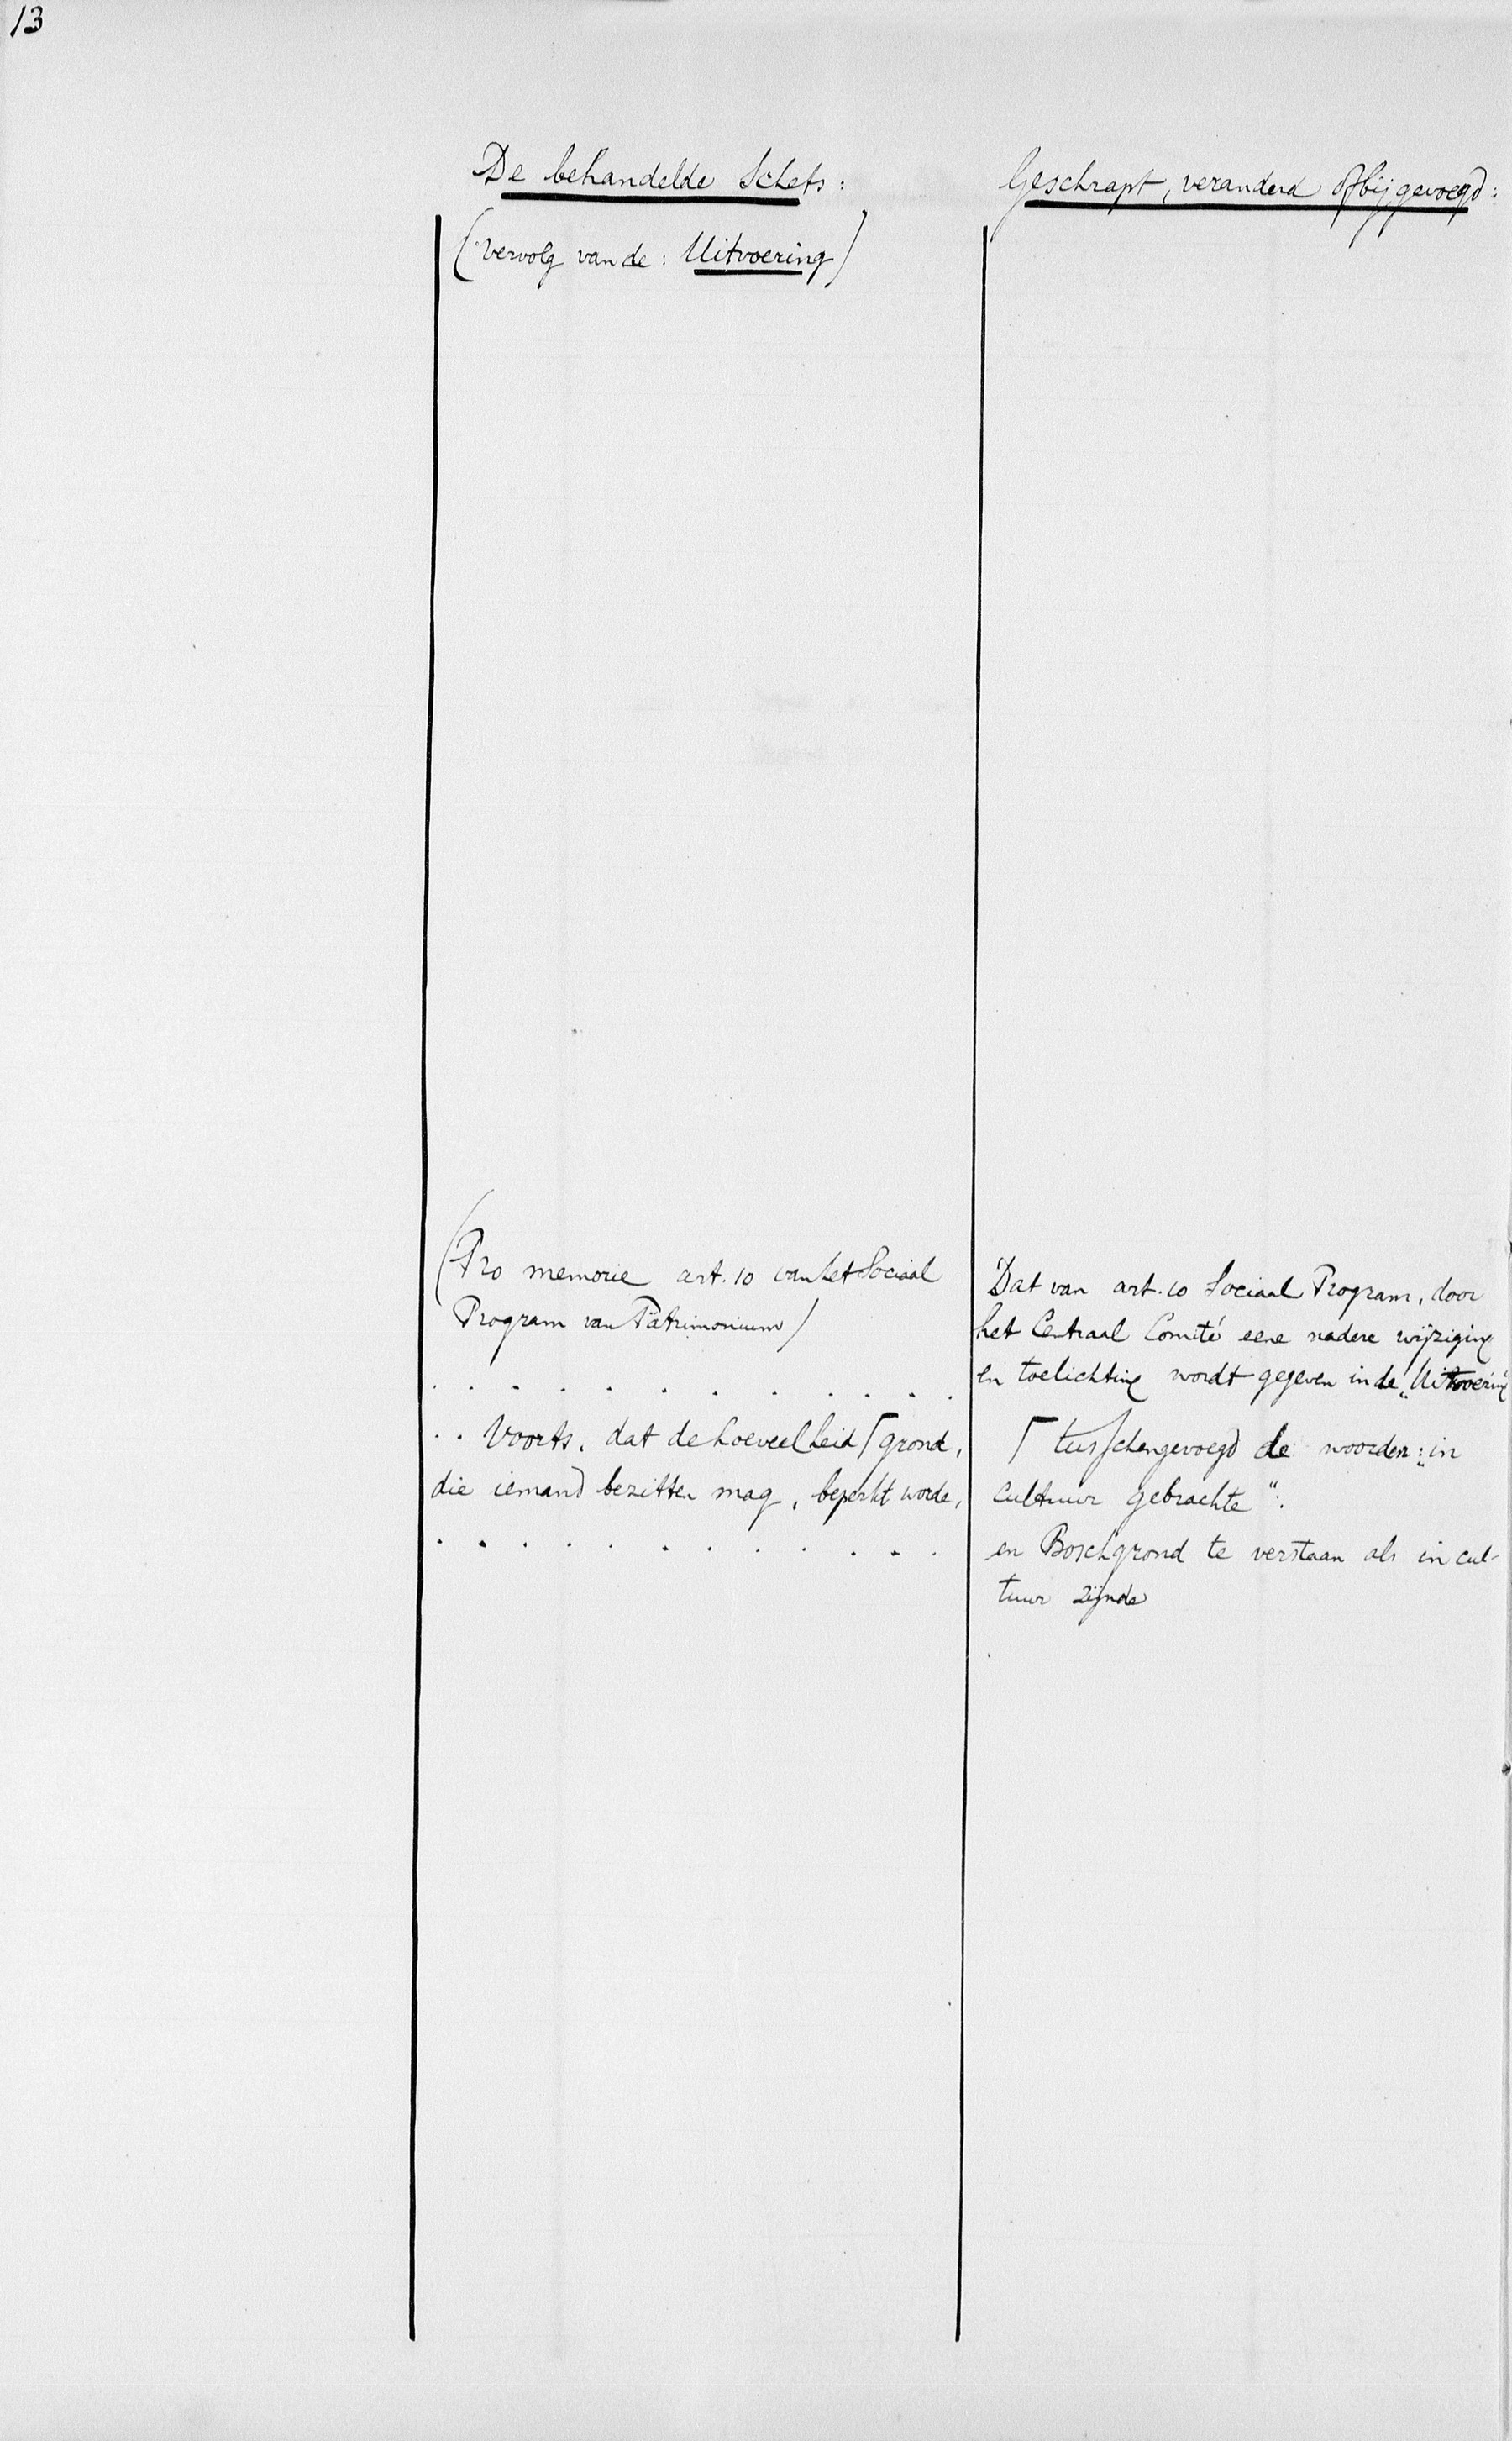 13
De behandelde Schets:
(vervolg van de: Uitvoering)
(Pro memorie art. 10 van het Sociaal
Program van Patrimonium)
. . . . . . . . . . . .
. . Voorts, dat de hoeveelheid ⌈ grond,
die iemand bezitten mag, beperkt worde,
. . . . . . . . . . . .
Geschrapt, veranderd of bijgevoegd:
Dat van art. 10 Sociaal Program, door
het Centraal Comité eene nadere wijziging
en toelichting wordt gegeven in de „Uitvoering"
⌈ tusschengevoegd de woorden: „in
cultuur gebrachte".
en Boschgrond te verstaan als in cul-
tuur zijnde